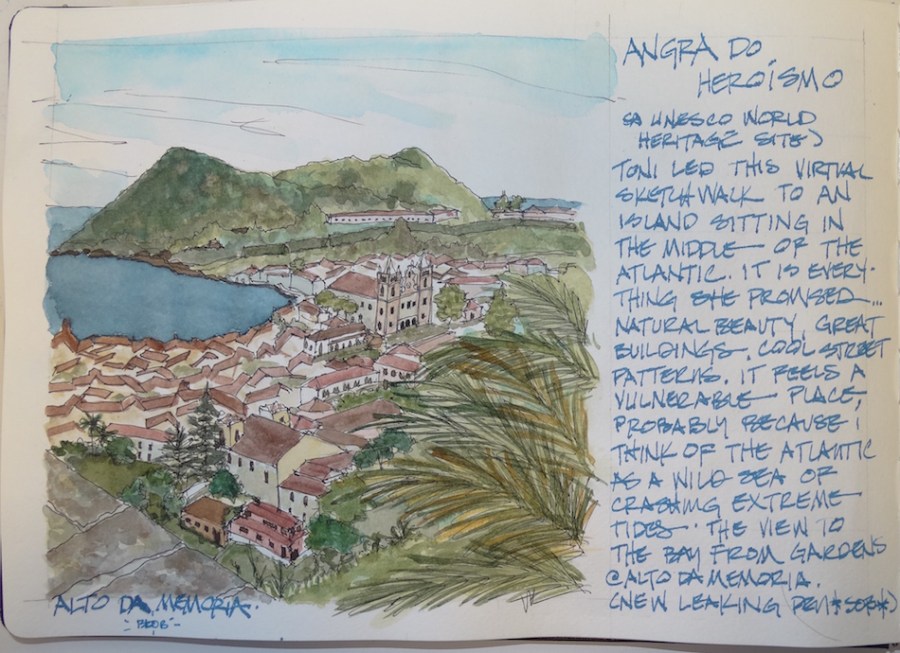 ANGRA DO
HEROÍSMO
(A UNESCO WORLD
HERITAGE SITE)
TONI LED THIS VIRTUAL
SKETCHWALK TO AN
ISLAND SITTING IN
THE MIDDLE OF THE
ATLANTIC. IT IS EVERY-
THING SHE PROMISED...
NATURAL BEAUTY, GREAT
BUILDINGS, COOL STREET
PATTERNS. IT FEELS A
VULNERABLE PLACE,
PROBABLY BECAUSE I
THINK OF THE ATLANTIC
AS A WILD SEA OF
CRASHING EXTREME
TIDES. THE VIEW TO
THE BAY FROM GARDENS
@ALTO DA MEMORIA.
(NEW LEAKING PEN *SOB*)
ALTO DA MEMORIA.
BLOB